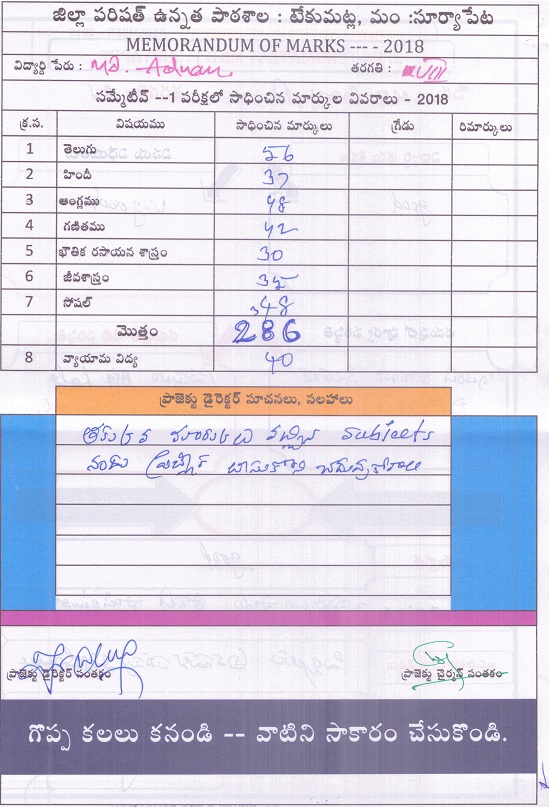 జిల్లా పరిషత్ ఉన్నత పాఠశాల : టేకుమట్ల, మం :సూర్యాపేట
MEMORANDUM OF MARKS --- - 2018
విద్యార్థి పేరు : Md. Adnan తరగతి : VIII
సమ్మేటీవ్ --1 పరీక్షలో సాధించిన మార్కుల వివరాలు - 2018
క్ర.స. విషయము సాధించిన మార్కులు గ్రేడు రిమార్కులు
1 తెలుగు 56
2 హిందీ 37
3 ఆంగ్లము 48
4 గణితము 42
5 భౌతిక రసాయన శాస్త్రం 30
6 జీవశాస్త్రం 35
7 సోషల్ 48
మొత్తం 286
8 వ్యాయామ విద్య 40
ప్రాజెక్టు డైరెక్టర్ సూచనలు, సలహాలు
తక్కువ మార్కులు వచ్చిన subjects
ప్రాజెక్టు డైరెక్టర్ సంతకం ప్రాజెక్టు చైర్మన్ సంతకం
గొప్ప కలలు కనండి -- వాటిని సాకారం చేసుకొండి.